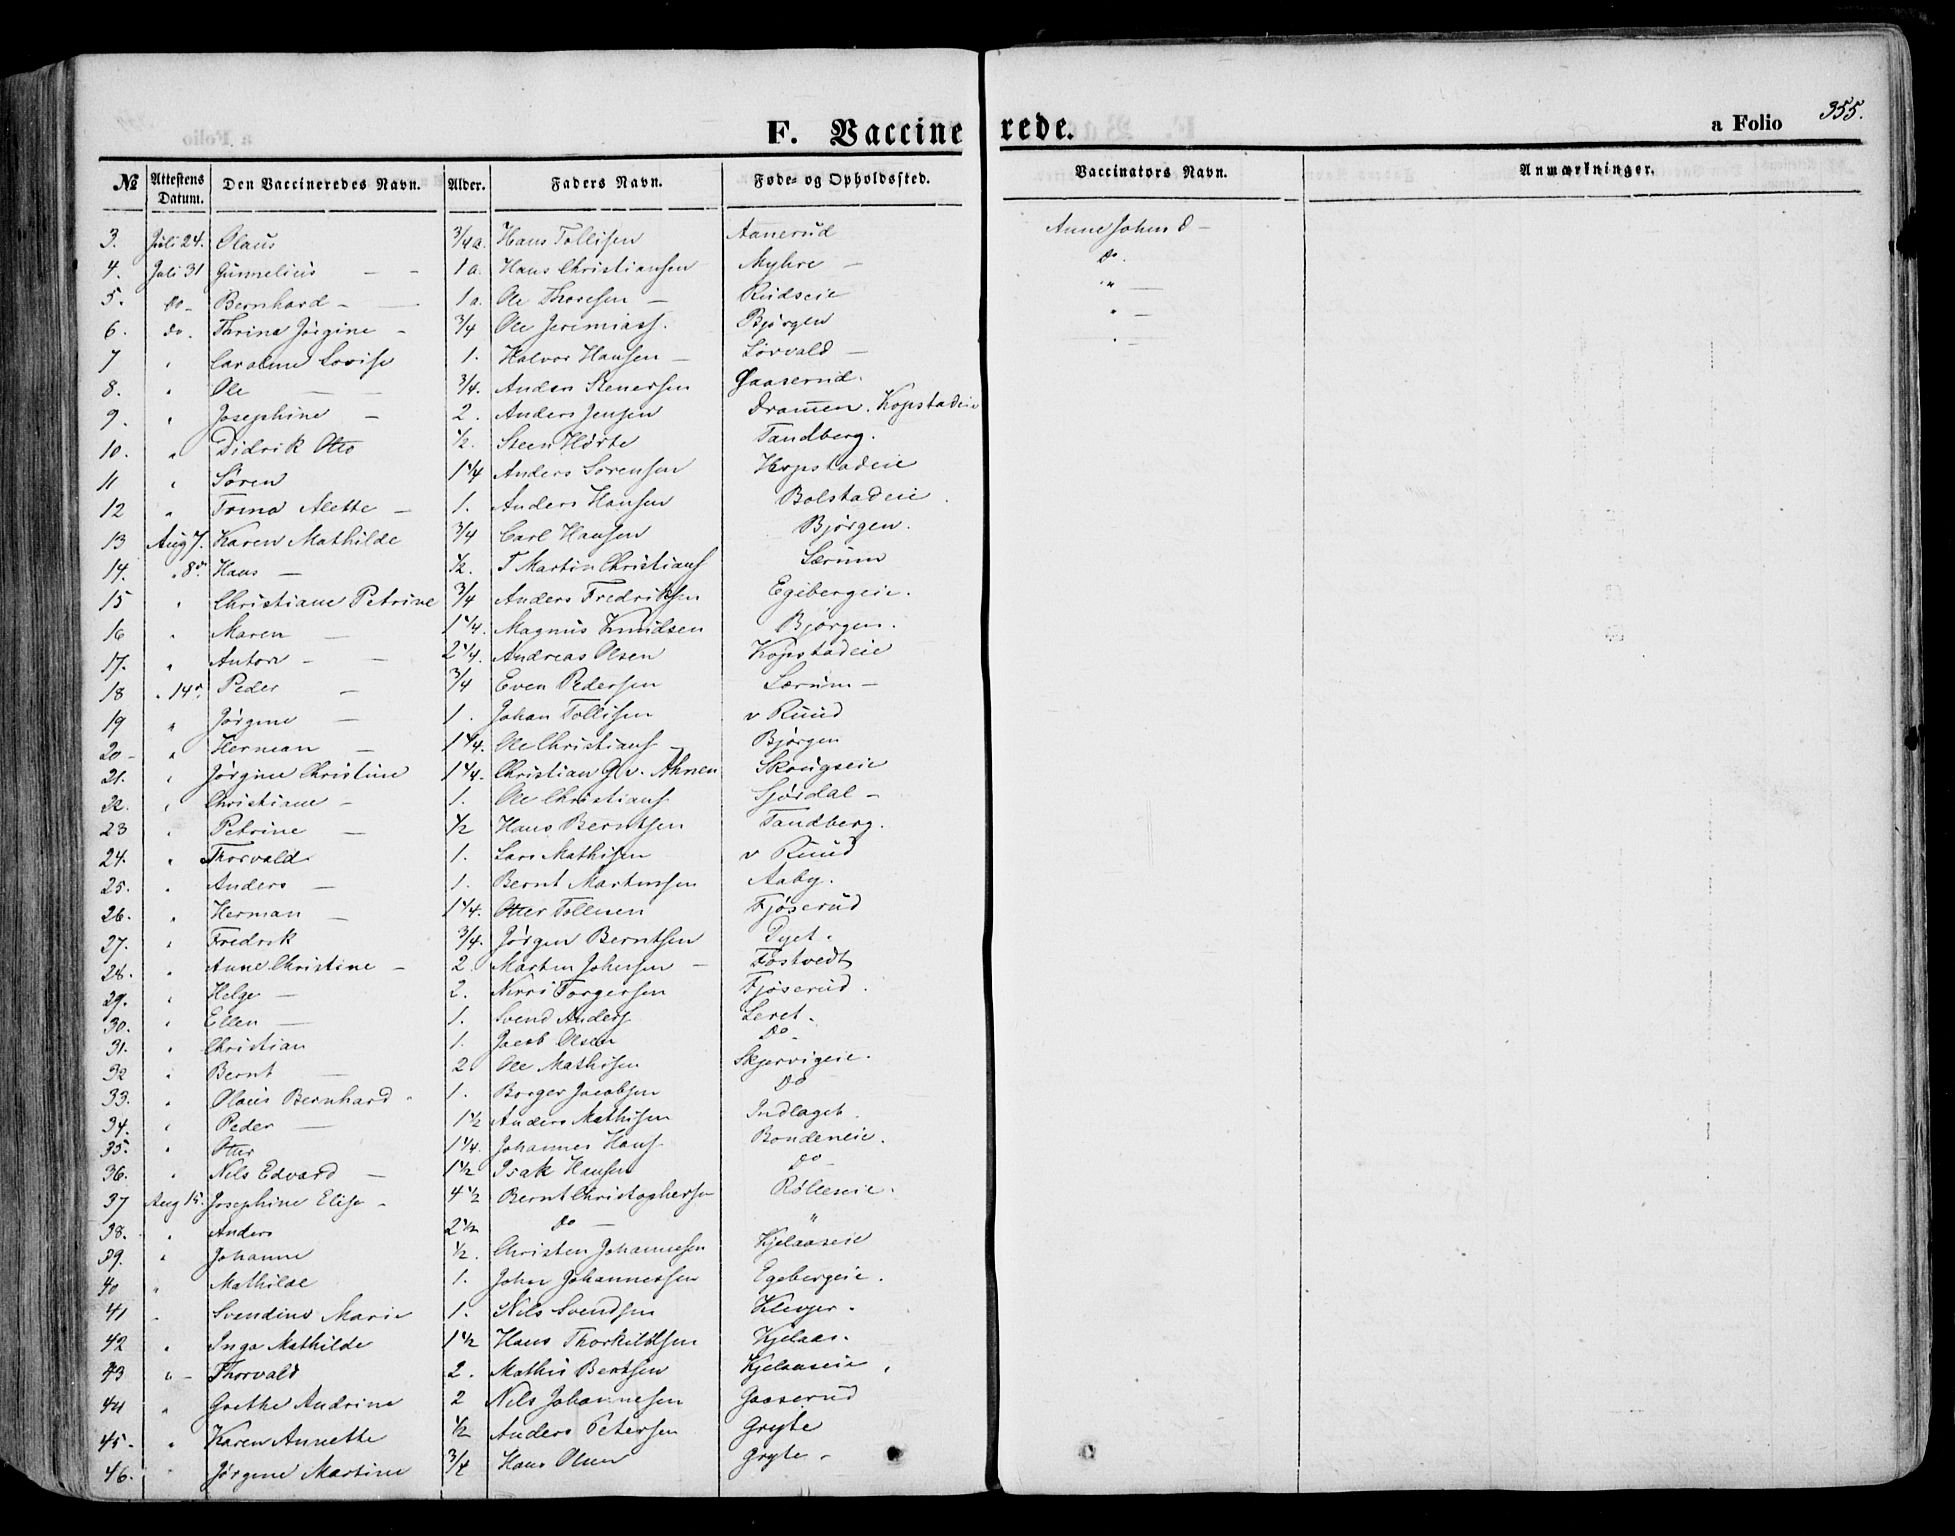 F. Vaccinerede. a Folio 355.
№ Attestens Datum. Den Vaccineredes Navn. Alder. Faders Navn. Føde- og Opholdssted. Vaccinators Navn. Anmærkninger.
3. Juli 24. Olaus 3/4 a. Hans Tollisen Aanerud Anne Johnsd -
4. Juli 31 Gunnelius - - 1 a. Hans Christiansen Myhre - Do.
5. do - Bernhard - 1 a. Ole Thoresen - Rudseie " -
6. do. Thrine Jørgine - 3/4 Ole Jeremiass. Bjørgen " -
7 " Caroline Lovise 1. Halvor Hansen - Sørvald -
8. " Ole - 3/4. Anders Stenersen Gaaserud.
9. " Josephine - 2. Anders Jensen Dramen. Kopstadeie
10. " Didrik Otto 1/2. Steen Hørte Tandberg.
11 " Søren 1 1/4 Anders Sørensen Kopstadeie
12 " Trine Alette - 1. Anders Hansen Bolstadeie.
13 Aug 7. Karen Mathilde 3/4 Carl Hansen Bjørgen.
14. " 8de Hans - 1/2. T Martin Christians Lærum
15 " Christiane Petrine 3/4 Anders Fredriksen Egebergeie.
16 " Maren - 1 1/4. Magnus Knudsen Bjørgen.
17. " Anton - - 2 1/4. Andreas Olsen Kopstadeie
18 " 14de Peder - 3/4 Even Pedersen Lærum -
19 " Jørgine - 1. Johan Tollisen v Ruud
20 - " Herman - 1 1/4. Ole Christians - Bjørgen
21. " Jørgine Christine 1 1/4. Christian G. v. Ahnen Skougseie
22. " Christiane - 1. Ole Christians Sjørdal -
23 " Petrine - 1/2 Hans Berntsen Tandberg.
24. " Thorvald 1. Lars Mathisen v Ruud
25. " Anders - 1. Bernt Martinsen Aaby.
26. " Herman - 1 1/4. Otter Tollisen Fjøserud
27. " Fredrik 3/4. Jørgen Berntsen Dyet.
28. " Anne Christine - 2. Martin Johnsen - Fostvedt
29. " Helge - 2. Torgersen Fjøserud.
30. " Ellen - 1. Svend Anders Leret.
31. " Christian 1. Jacob Olsen Do
32 " Bernt - 2 Ole Mathisen Skjervigeie.
33. " Olaus Bernhard - 1. Borger Jacobsen Do
34. " Peder - 1 1/2 Anders Mathisen Indlaget.
35. " Otter 1 1/4. Johannes Hans Bondeneie.
36. " Nils Edvard - 1 1/2 Isak Hansen Do -
37 Aug 15. Josephine Elise - 4 1/2 Bernt Christophersen Rølleneie.
38. " Anders 2 1/2 Do - "
39. " Johanne 1/2. Christen Johannesen Kjelaaseie
40 " Mathilde 1. Johan Johannessen Egebergeie.
41 " Svendine Marie 1. Nils Svendsen Klevjer.
42 " Inga Mathilde 1 1/2 Hans Thorkildsen Kjelaas.
43 " - Thorvald 2. Mathis Berntsen Kjelaaseie.
44 " Grethe Andrine 2 Nils Johannesen Gaaserud
45. " Karen Annette 1/2 Anders Petersen Gryte
46. " Jørgine Martine 3/4 Hans Olsen Gryte -